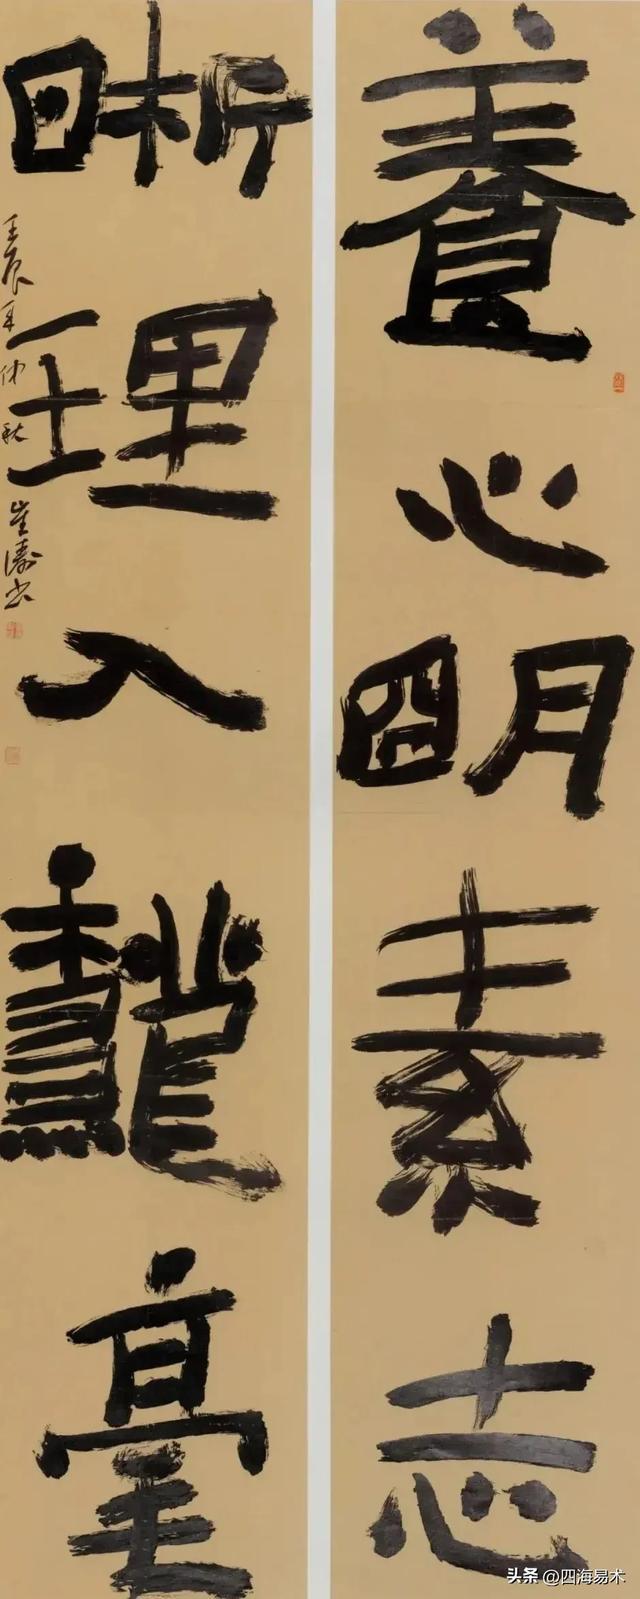 養心明素志
晰理入毫
壬辰年仲秋崔濤書
头条 @四海易木